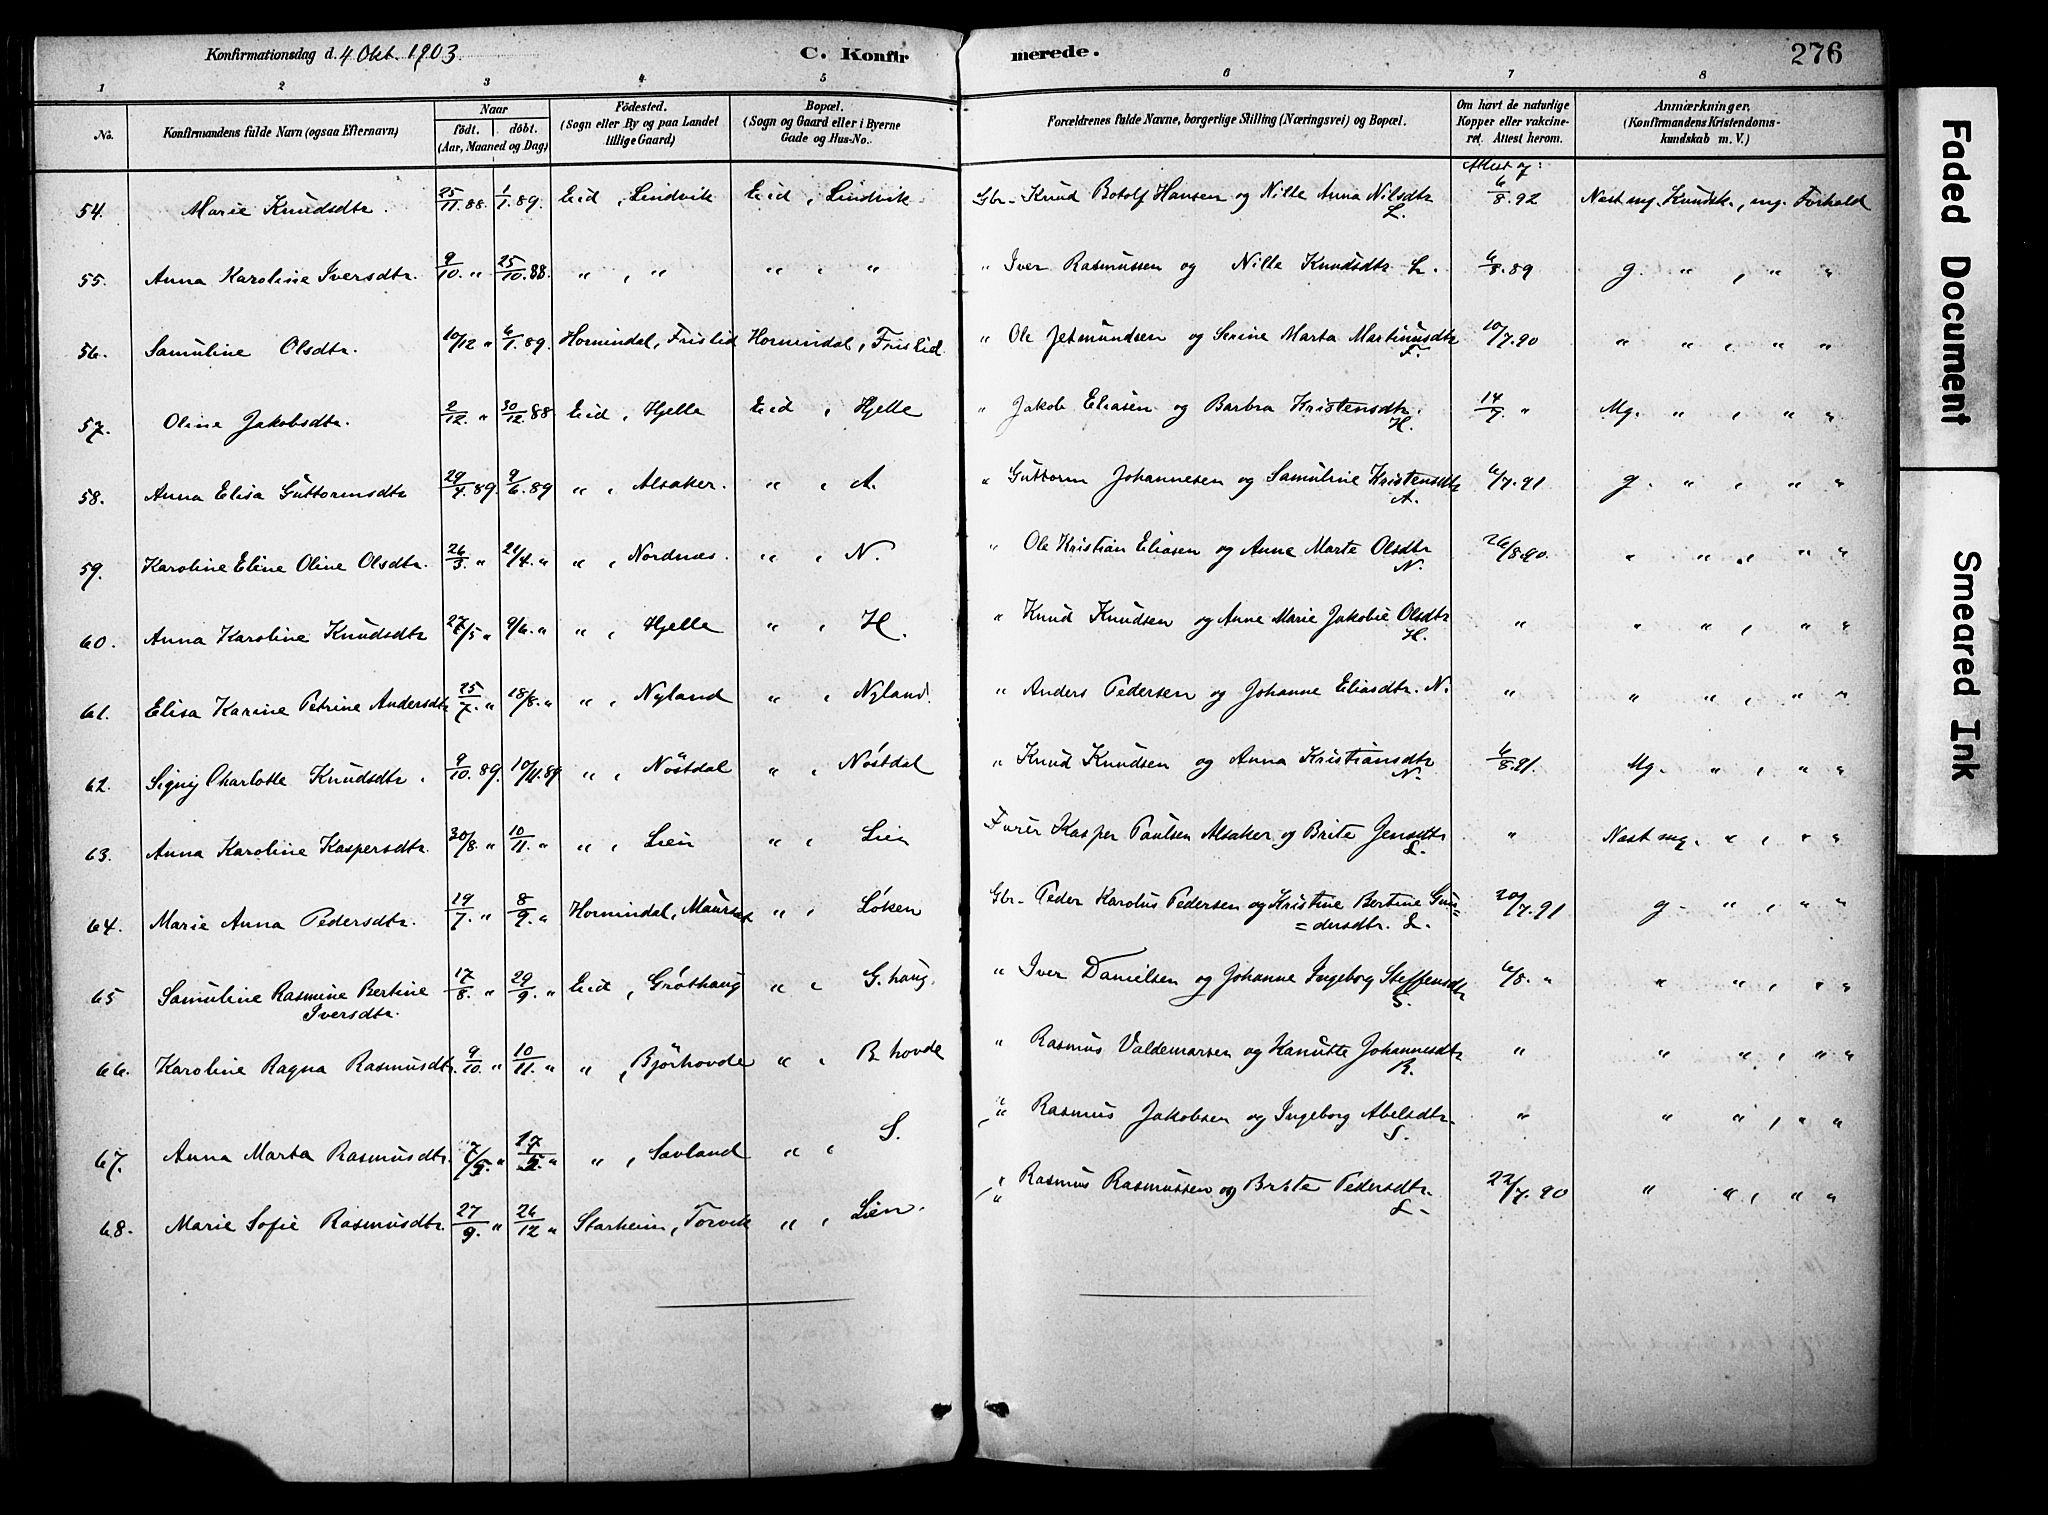 Konfirmationsdag d. 4 Okt. 1903. C. Konfirmerede. 276
1 2 3 4 5 6 7 8
No. Konfirmandens fulde Navn (ogsaa Efternavn) Naar födt. döbt. (Aar, Maaned og Dag) Födested. (Sogn eller By og paa Landet tillige Gaard) Bopæl. (Sogn og Gaard eller i Byerne Gade og Hus-No. Forældrenes fulde Navne, borgerlige Stilling (Næringsvei) og Bopæl. Om havt de naturlige Kopper eller vakcineret. Attest herom. Anmærkninger. (Konfirmandens Kristendomskundskab m. V.)
54. Marie Knudsdtr. 25/11.88. 1/1.89. Eid, Lindvik Eid, Lindvik Gbr. Knud Botolf Hansen og Nille Anna Nilsdtr L. 6/8.92 Næst mg. Kundsk., mg. Forhold
55. Anna Karoline Iversdtr. 9/10. " 25/10.88. " , " " , " " Iver Rasmussen og Nille Knudsdtr L. 6/8.89 g. " , " "
56. Samuline Olsdtr. 10/12 " 6/1.89. Hornindal, Frislid Hornindal, Frislid. " Ole Jetmundsen og Serine Marta Martinusdtr F. 10/7.90 " " , " "
57. Oline Jakobsdtr. 2/12. " 30/12.88 Eid, Hjelle Eid, Hjelle " Jakob Eliasen og Barbra Kristensdtr. H. 14/7 " Mg. " , " "
58. Anna Elisa Guttormsdtr 29/4.89. 9/6.89 " , Alsaker. " , A. " Guttorm Johannesen og Samuline Kristensdtr A. 6/7.91 g. " , " "
59. Karoline Eline Oline Olsdtr. 26/3. " 21/4. " " , Nordnes. " , N. " Ole Kristian Eliasen og Anne Marte Olsdtr N. 26/8.90. " " , " "
60. Anna Karoline Knudsdtr 27/5 " 9/6. " " , Hjelle " , H. " Knud Knudsen og Anne Marie Jakobie Olsdtr H. " " " , " "
61. Elisa Karine Petrine Andersdtr 25/7. " 18/8. " " , Nyland " , Nyland. " Anders Pedersen og Johanne Eliasdtr. N. " " " , " "
62. Signy Charlotte Knudsdtr. 9/10.89. 10/11.89 " , Nöstdal " , Nöstdal " Knud Knudsen og Anna Kristiansdtr N. 6/8.91. Mg. " , " "
63. Anna Karoline Kaspersdtr. 30/8. " 10/11. " " , Lien " , Lien Furér Kasper Paulsen Alsaker og Brite Jensdtr L. " Næst mg. " , " "
64. Marie Anna Pedersdtr. 19/7. " 8/9. " Hornindal, Maurset " , Løken Gbr. Peder Karolus Pedersen og Kristine Bertine Gun=
=dersdtr. L. 20/7.91 g. " , " "
65 Samuline Rasmine Bertine 17/8. " 29/9. " Eid, Grøthaug " , G.haug. " Iver Danielsen og Johanne Ingeborg Steffensdtr 6/8. " " " , " "
Iversdtr. G.
66. Karoline Ragna Rasmusdtr. 9/10. " 10/11. " " , Bjørhovde " , B.hovde " Rasmus Valdemarsen og Kanutte Johannesdtr B. " " " , " "
67. Anna Marta Rasmusdtr. 7/5. " 17/5. " " , Savland " , S. " Rasmus Jakobsen og Ingeborg Abelsdtr. S. " " " , " "
68. Marie Sofie Rasmusdtr. 27/9. " 26/12 " Starheim, Torvik " , Lien. " Rasmus Rasmussen og Brite Pedersdtr. L. 22/7.90 " " , " "
Faded Document
Smeared Ink